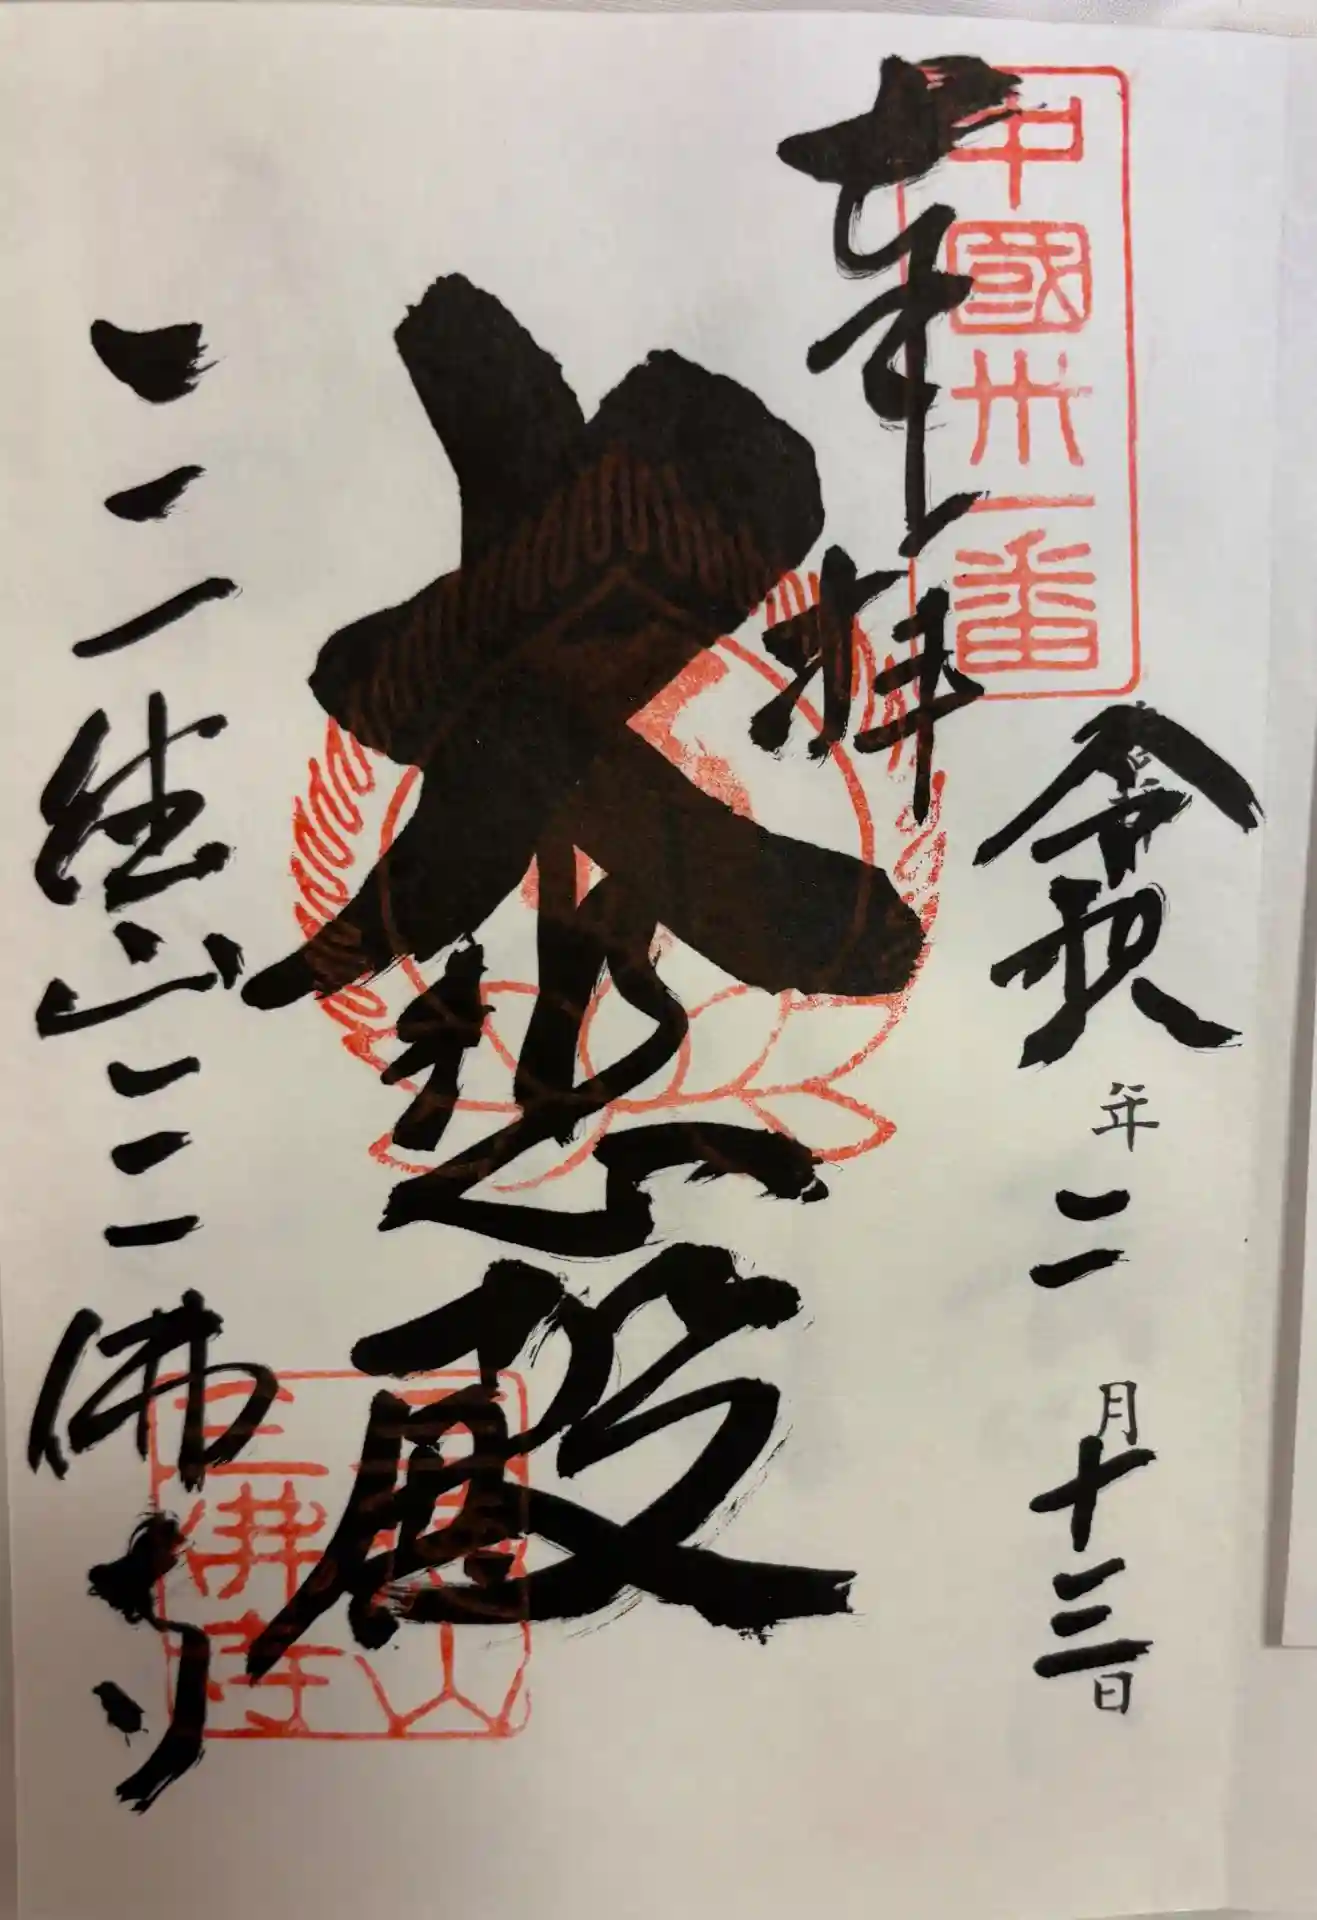 中國卅一番
奉拝
令和八年二月十三日
大悲殿
三徳山三佛寺
三徳山
三佛寺